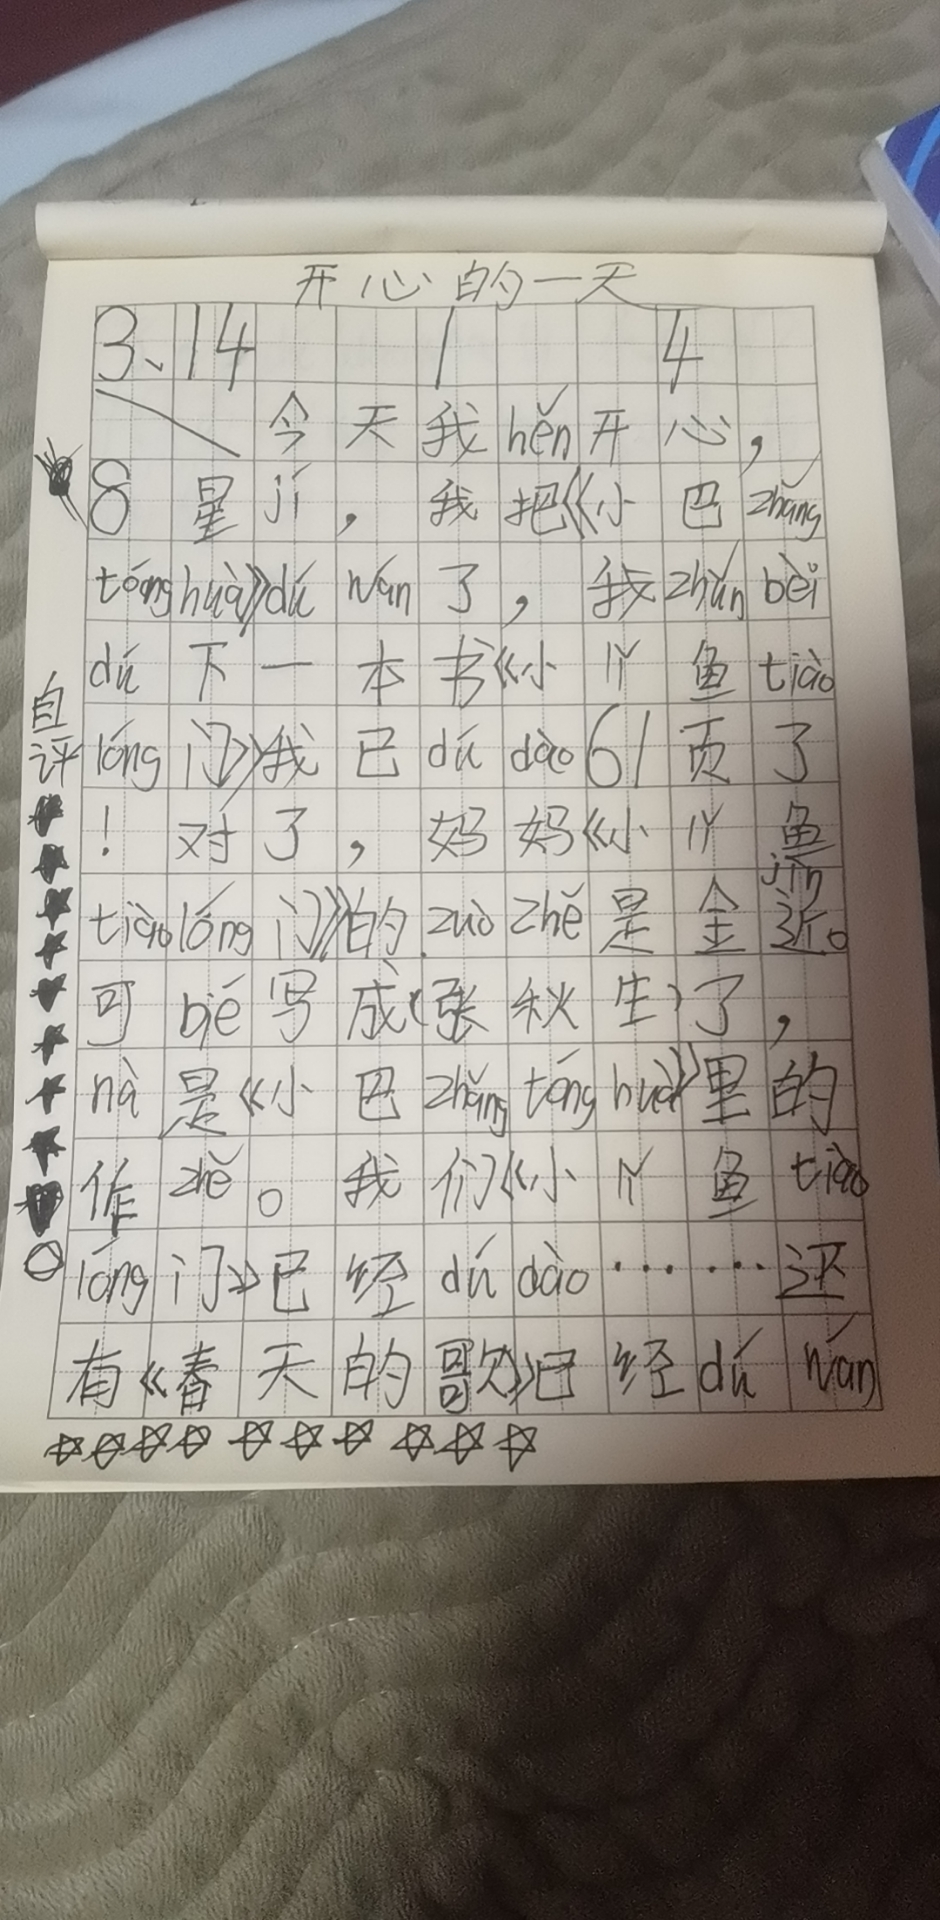 开心的一天
3、14 1 4
今天我hěn开心，
8星jí，我把《小巴zhǎng
tónghuà》dú wán了，我zhǔn bèi
dú下一本书《小鱼tiào
lóng门》我已dú dào61页了
！对了，妈妈《小鱼
jīn
tiàolóng门》的zuò zhě是金近。
可bié写成(张秋生)了，
nà是《小巴zhǎng tóng huà》里的
作zhě。我们《小鱼tiào
lóng门》已经dú dào……还
有《春天的歌》已经dú wán
自评